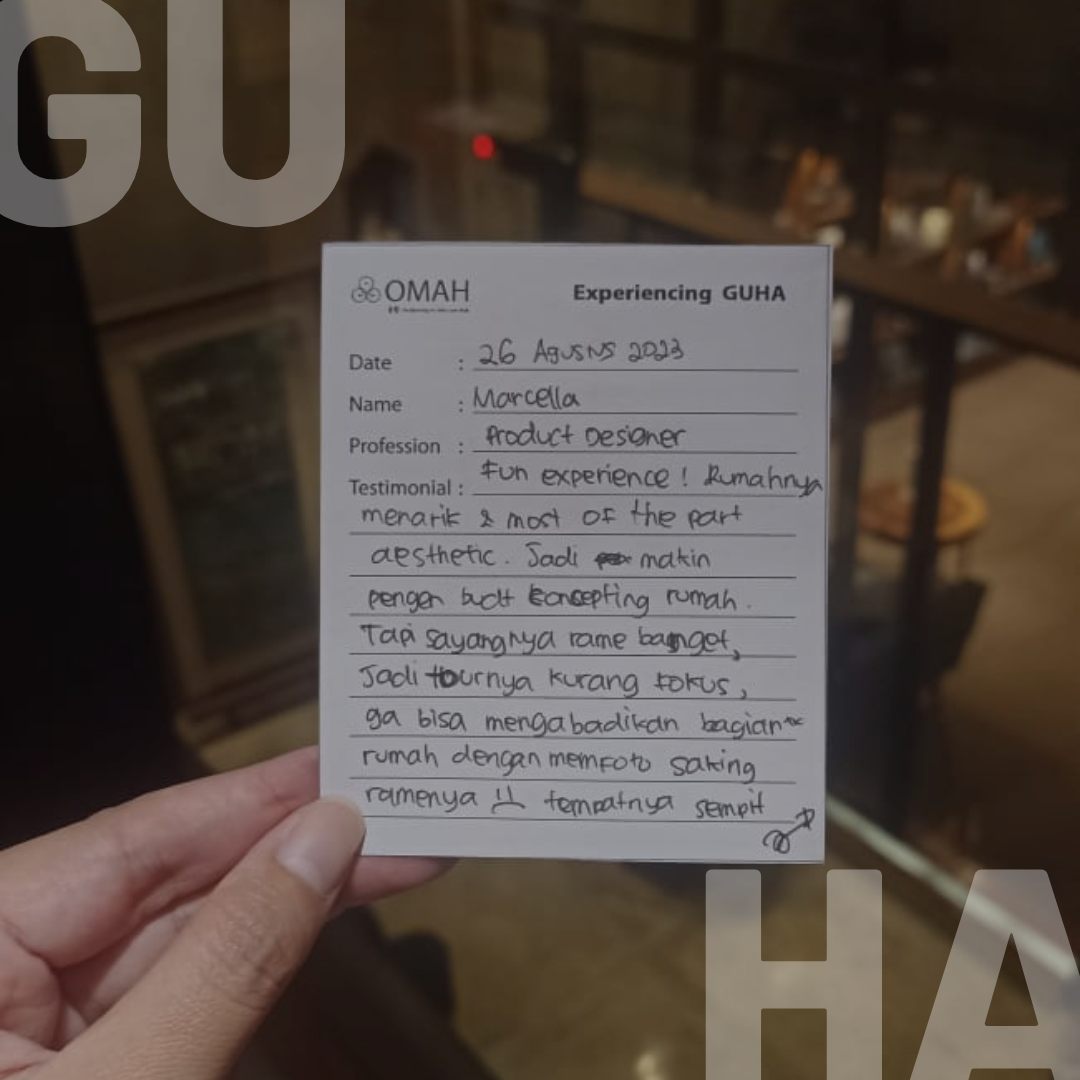 GU
OMAH
Experiencing GUHA
Date : 26 Agustus 2023
Name : Marcella
Profession : Product Designer
Testimonial : Fun experience! Rumahnya
menarik & most of the part
aesthetic. Jadi makin
pengen buat konsepting rumah.
Tapi sayangnya rame banget,
Jadi tournya kurang fokus,
ga bisa mengabadikan bagian
rumah dengan memfoto saking
ramenya tempatnya sempit
HA